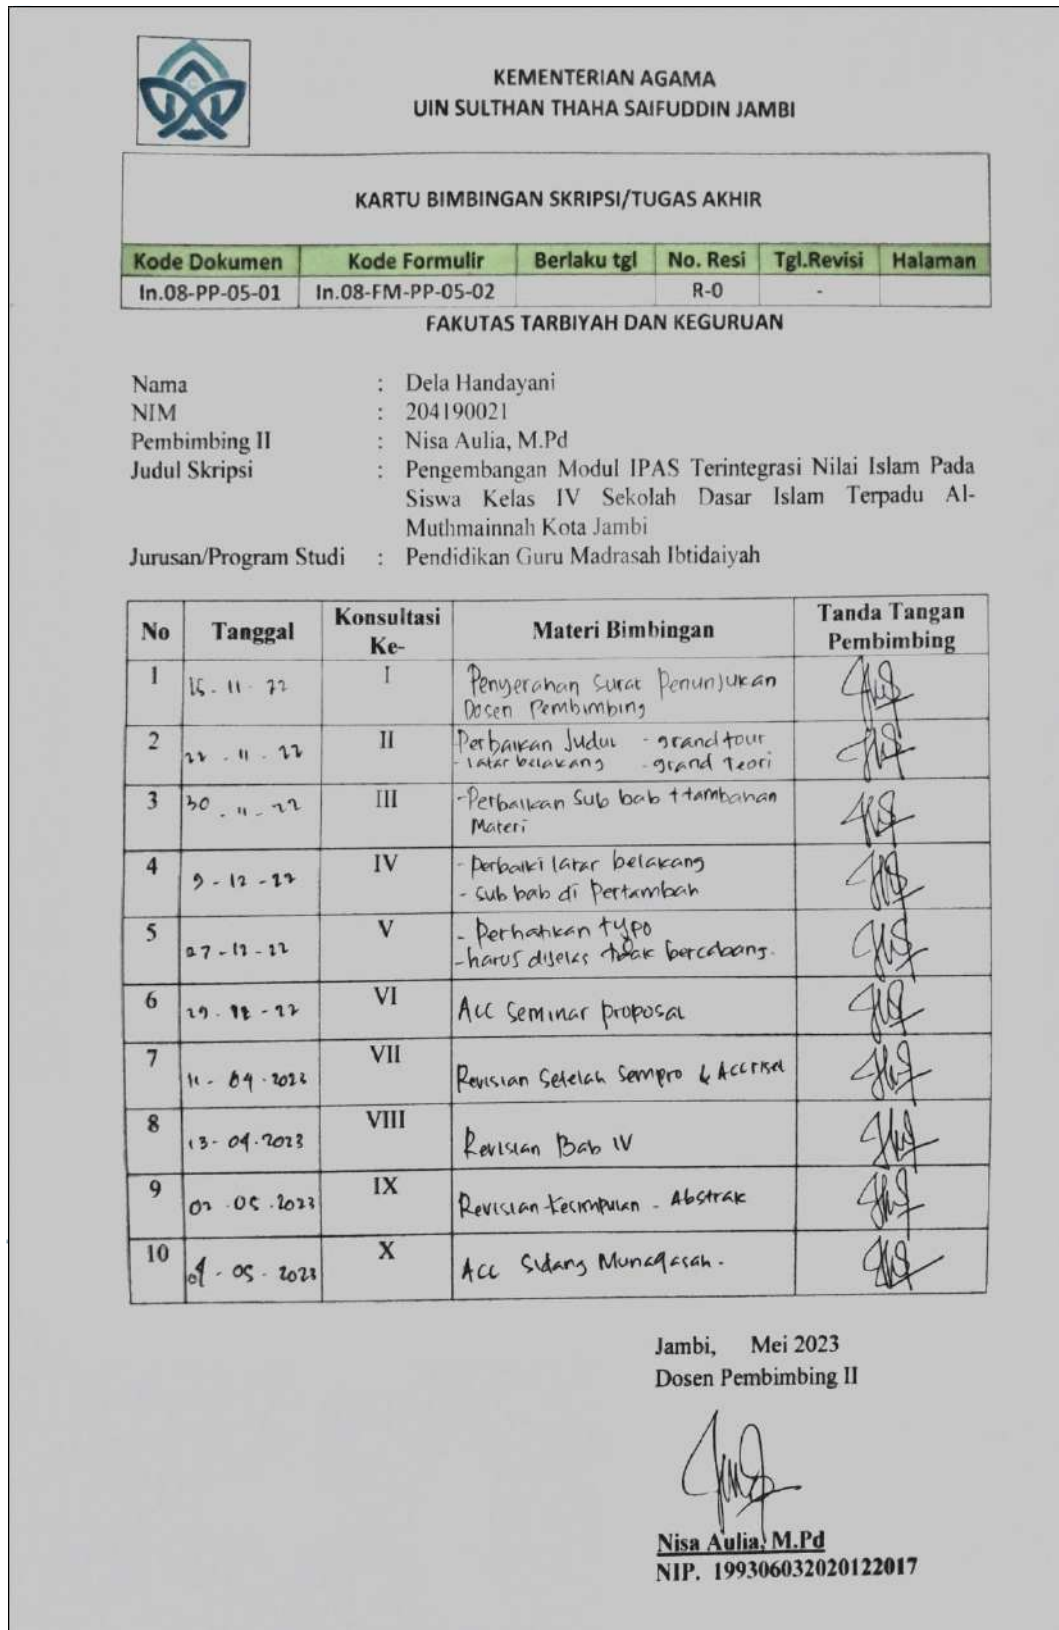 KEMENTERIAN AGAMA
UIN SULTHAN THAHA SAIFUDDIN JAMBI
KARTU BIMBINGAN SKRIPSI/TUGAS AKHIR
Kode Dokumen Kode Formulir Berlaku tgl No. Resi Tgl.Revisi Halaman
In.08-PP-05-01 In.08-FM-PP-05-02 R-0 -
FAKUTAS TARBIYAH DAN KEGURUAN
Nama : Dela Handayani
NIM : 204190021
Pembimbing II : Nisa Aulia, M.Pd
Judul Skripsi : Pengembangan Modul IPAS Terintegrasi Nilai Islam Pada
Siswa Kelas IV Sekolah Dasar Islam Terpadu Al-
Muthmainnah Kota Jambi
Jurusan/Program Studi : Pendidikan Guru Madrasah Ibtidaiyah
No Tanggal Konsultasi Ke- Materi Bimbingan Tanda Tangan Pembimbing
1 15 - 11 - 22 I Penyerahan Surat Penunjukan
Dosen Pembimbing
2 22 - 11 - 22 II Perbaikan Judul - grand tour
- latar belakang - grand Teori
3 30 - 11 - 22 III - Perbaikan Sub bab + tambahan
Materi
4 9 - 12 - 22 IV - Perbaiki latar belakang
- sub bab di Pertambah
5 27 - 12 - 22 V - Perhatikan typo
- harus dijelas tidak bercabang.
6 29 - 12 - 22 VI Acc Seminar proposal
7 11 - 04 - 2023 VII Revisian Setelah Sempro & Acc riset
8 13 - 04 - 2023 VIII Revisian Bab IV
9 02 - 05 - 2023 IX Revisian Kesimpulan - Abstrak
10 04 - 05 - 2023 X Acc Sidang Munaqasah.
Jambi, Mei 2023
Dosen Pembimbing II
Nisa Aulia, M.Pd
NIP. 199306032020122017